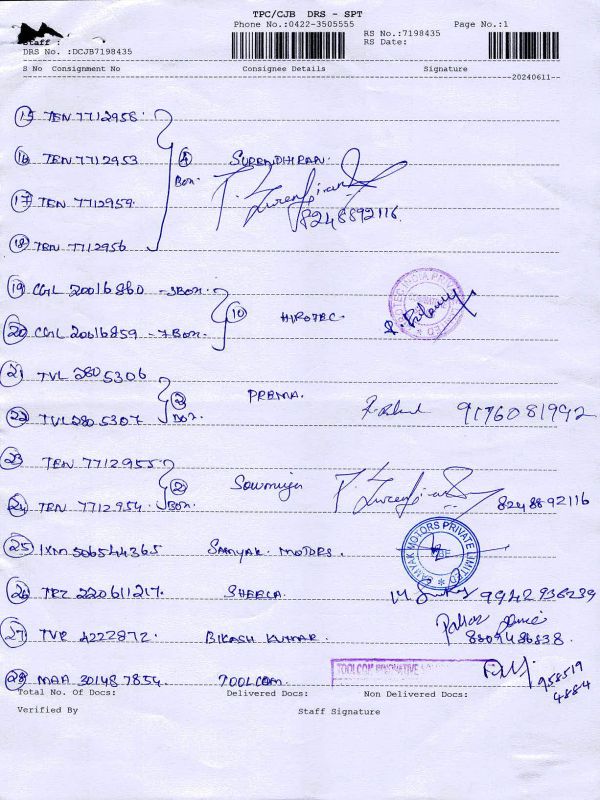 TPC/CJB DRS - SPT
Phone No.:0422-3505555 Page No.:1
Staff :
RS No.:7198435
DRS No. :DCJB7198435 RS Date:
S No Consignment No Consignee Details Signature
20240611
15 TEN 7712958
16 TEN 7712953 4 Box. SURENDHIRAN
17 TEN 7712959 8248892116
18 TEN 7712956
19 CGL 20016860 - 3 Box. 10 HIROTEC
20 CGL 20016859 - 7 Box.
21 TVL 2805306 PREMA
22 TVL 2805307 2 Box. 9176081992
23 TEN 7712955
24 TEN 7712954 2 Box. Sowmiya 8248892116
25 IXM 506544365 SAMYAK MOTORS.
SAMYAK MOTORS PRIVATE LIMITED
26 TRZ 220611217. SHEELA 9942936239
27 TVR 4222872 BIKASH KUMAR 8809486838
28 MAA 301487854 TOOLCOM. TOOLCOM INNOVATIVE 9585194884
Total No. Of Docs: Delivered Docs: Non Delivered Docs:
Verified By Staff Signature